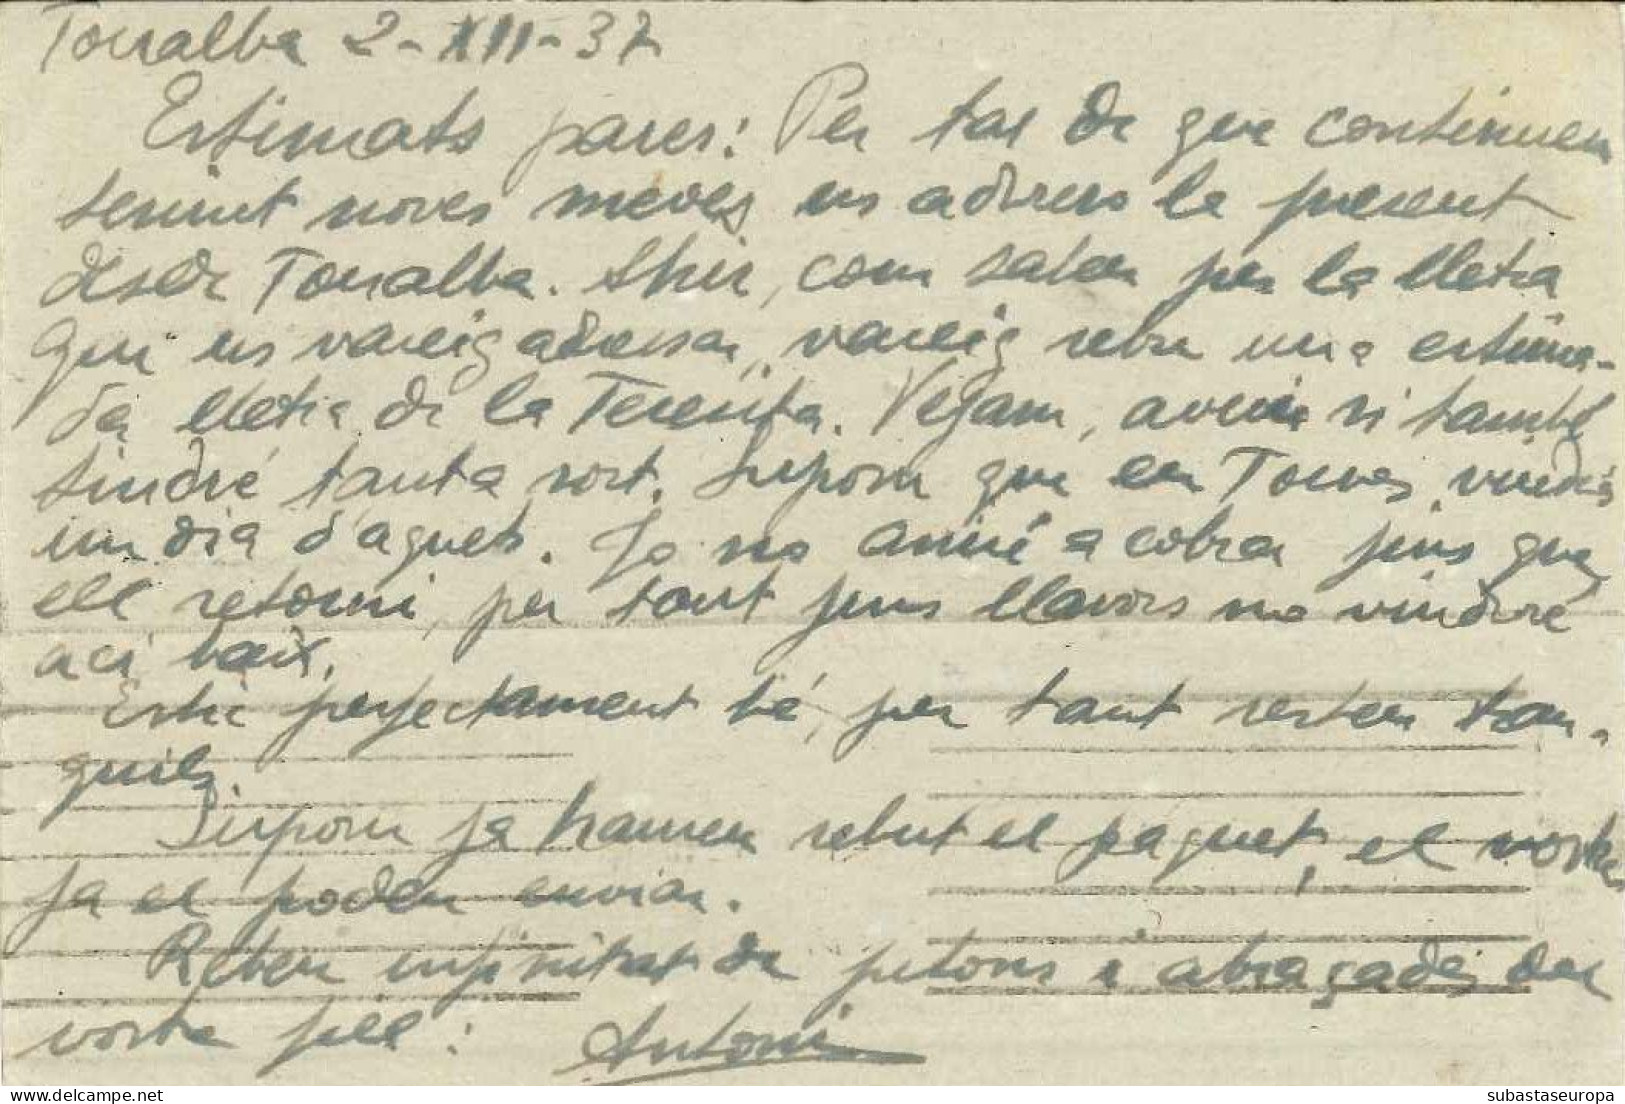 Torralba 2-XII-37
Estimats pares: Per tal de que continuen
tenint noves meves, us adreço la present
desde Torralba. Ahir, com saben per la lletra
que us vareig adressar, vareig rebre una estima-
da lletra de la Teresita. Vejam, avui si també
tindré tanta sort. Suposu que en Torres vindrà
un dia d'aquets. Jo no aniré a cobrar fins que
ell retorni, per tant fins llavors no vindré
aci baix.
Estic perfectament bé, per tant resten tran-
quils.
Suposu ja hauran rebut el paquet, el vostre
ja el poden enviar.
Reben infinitat de petons i abraçades del
vostre fill:
Antoni
delcampe.net
subastaseuropa